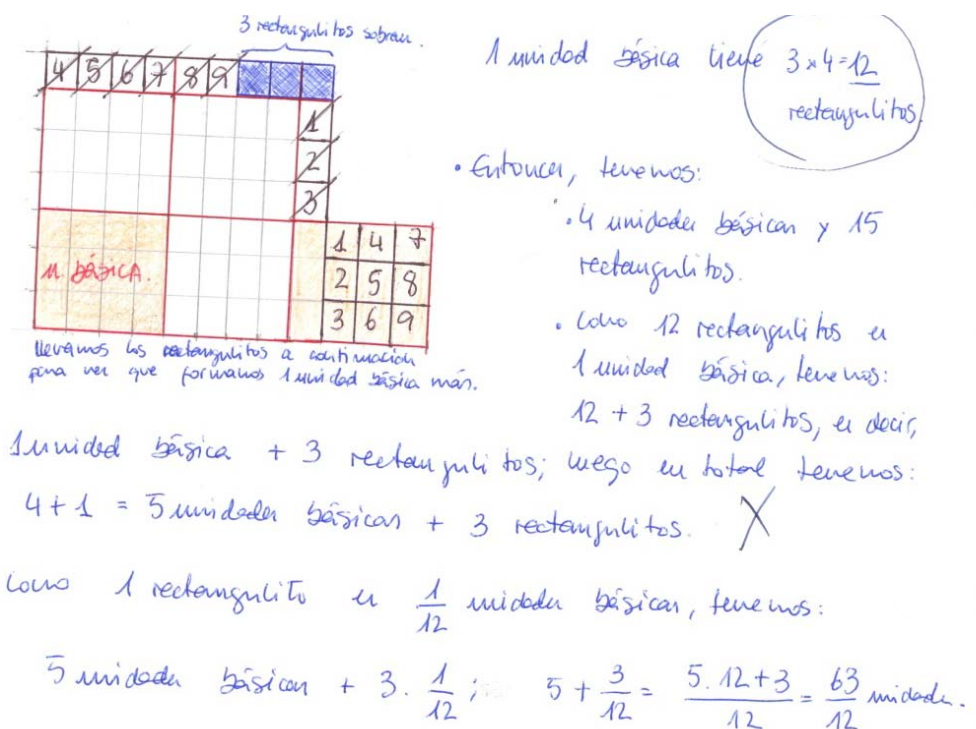 3 rectangulitos sobran.
4 5 6 7 8 9
1
2
3
1 4 7
2 5 8
3 6 9
U. BÁSICA.
llevamos los rectangulitos a continuación
para ver que formamos 1 unidad básica más.
1 unidad básica tiene 3 x 4 = 12
rectangulitos.
• Entonces, tenemos:
• 4 unidades básicas y 15
rectangulitos.
• Como 12 rectangulitos es
1 unidad básica, tenemos:
12 + 3 rectangulitos, es decir,
1 unidad básica + 3 rectangulitos; luego en total tenemos:
4 + 1 = 5 unidades básicas + 3 rectangulitos. X
Como 1 rectangulito es 1/12 unidades básicas, tenemos:
5 unidades básicas + 3 · 1/12 ; 5 + 3/12 = 5.12+3/12 = 63/12 unidades.